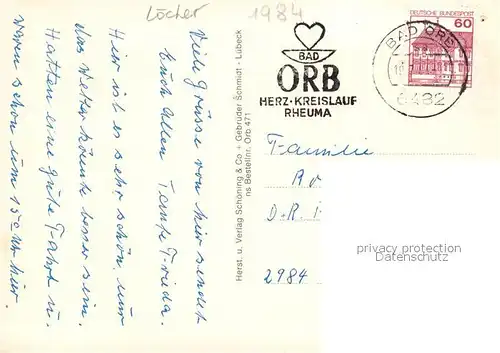 Löcher 1984
Viele Grüsse von hier sendet
Euch Allen Tante Frieda.
Hier ist es sehr schön, nur
das Wetter könnte besser sein.
Hatten eine gute Fahrt u.
waren schon um 15°° Uhr hier.
Herst. u. Verlag Schöning & Co + Gebrüder Schmidt - Lübeck
ns Bestellnr. Orb 471
BAD
ORB
HERZ·KREISLAUF
RHEUMA
DEUTSCHE BUNDESPOST
60
BAD ORB
6482
Familie
D.R.
2984
privacy protection
Datenschutz